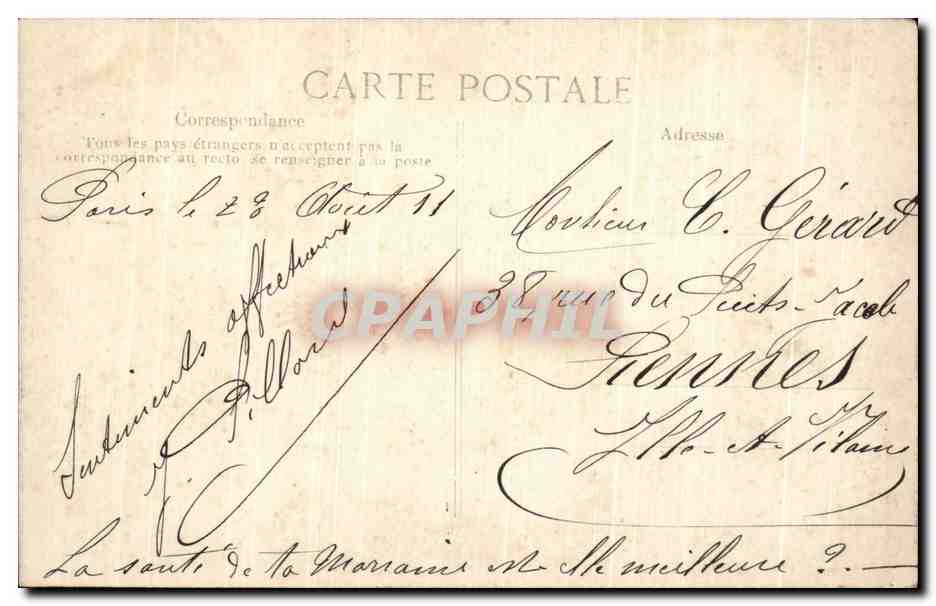 CARTE POSTALE
Correspondance
Tous les pays étrangers n'acceptent pas la
correspondance au recto se renseigner à la poste
Adresse
Paris le 23 Août 11
Sentiments affectueux
J. Pillard
La santé de ta Marraine est elle meilleure ? —
Monsieur C. Gérard
38, rue du Puits-Jacob
Rennes
Ille-et-Vilaine
CPAPHIL